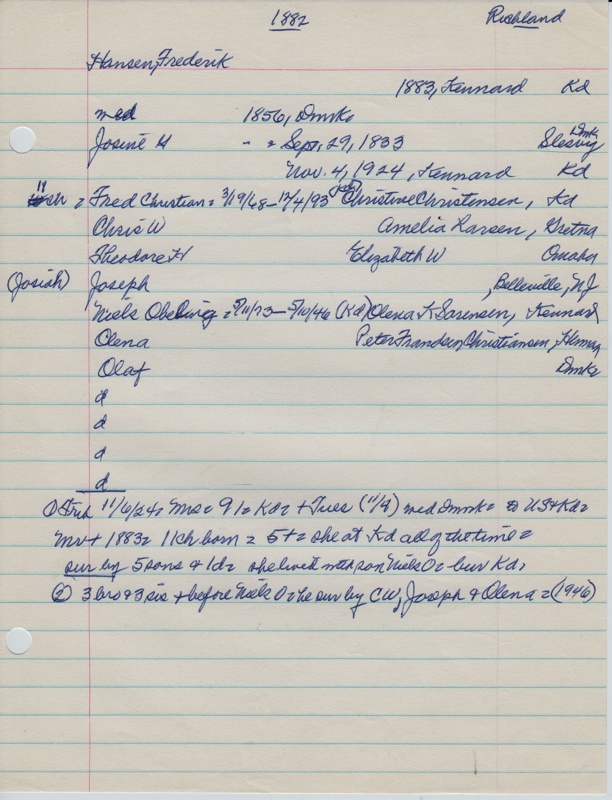 1882 Richland
Hansen, Frederik
1883, Kennard Kd
med 1856, Dmrk
Josine H " = Sept, 29, 1833 Slesvig Dmk
Nov. 4, 1924, Kennard Kd
11 ch = Fred Christian = 3/19/68 - 12/4/93 Christine Christensen, Kd
Chris W Amelia Larsen, Gretna
Theodore H Elizabeth W Omaha
(Josiah) Joseph , Belleville, NJ
Niels = 5/11/73 - 5/10/46 (Kd) Olena K Sorensen, Kennard
Olena Peter Frandsen Christiansen, Herman
Olaf Dmk
d
d
d
d
① 11/6/24 = Mrs = 91 = Kd = + Tues (11/4) med Dmrk = to US + Kd =
Mv + 1883 = 11 ch born = 5 + = she at Kd all of the time =
sur by 5 sons & 1 d = she lived with son Niels O = bur Kd,
② 3 bro & 3 sis + before Niels O = he sur by CW, Joseph & Olena = (1946)